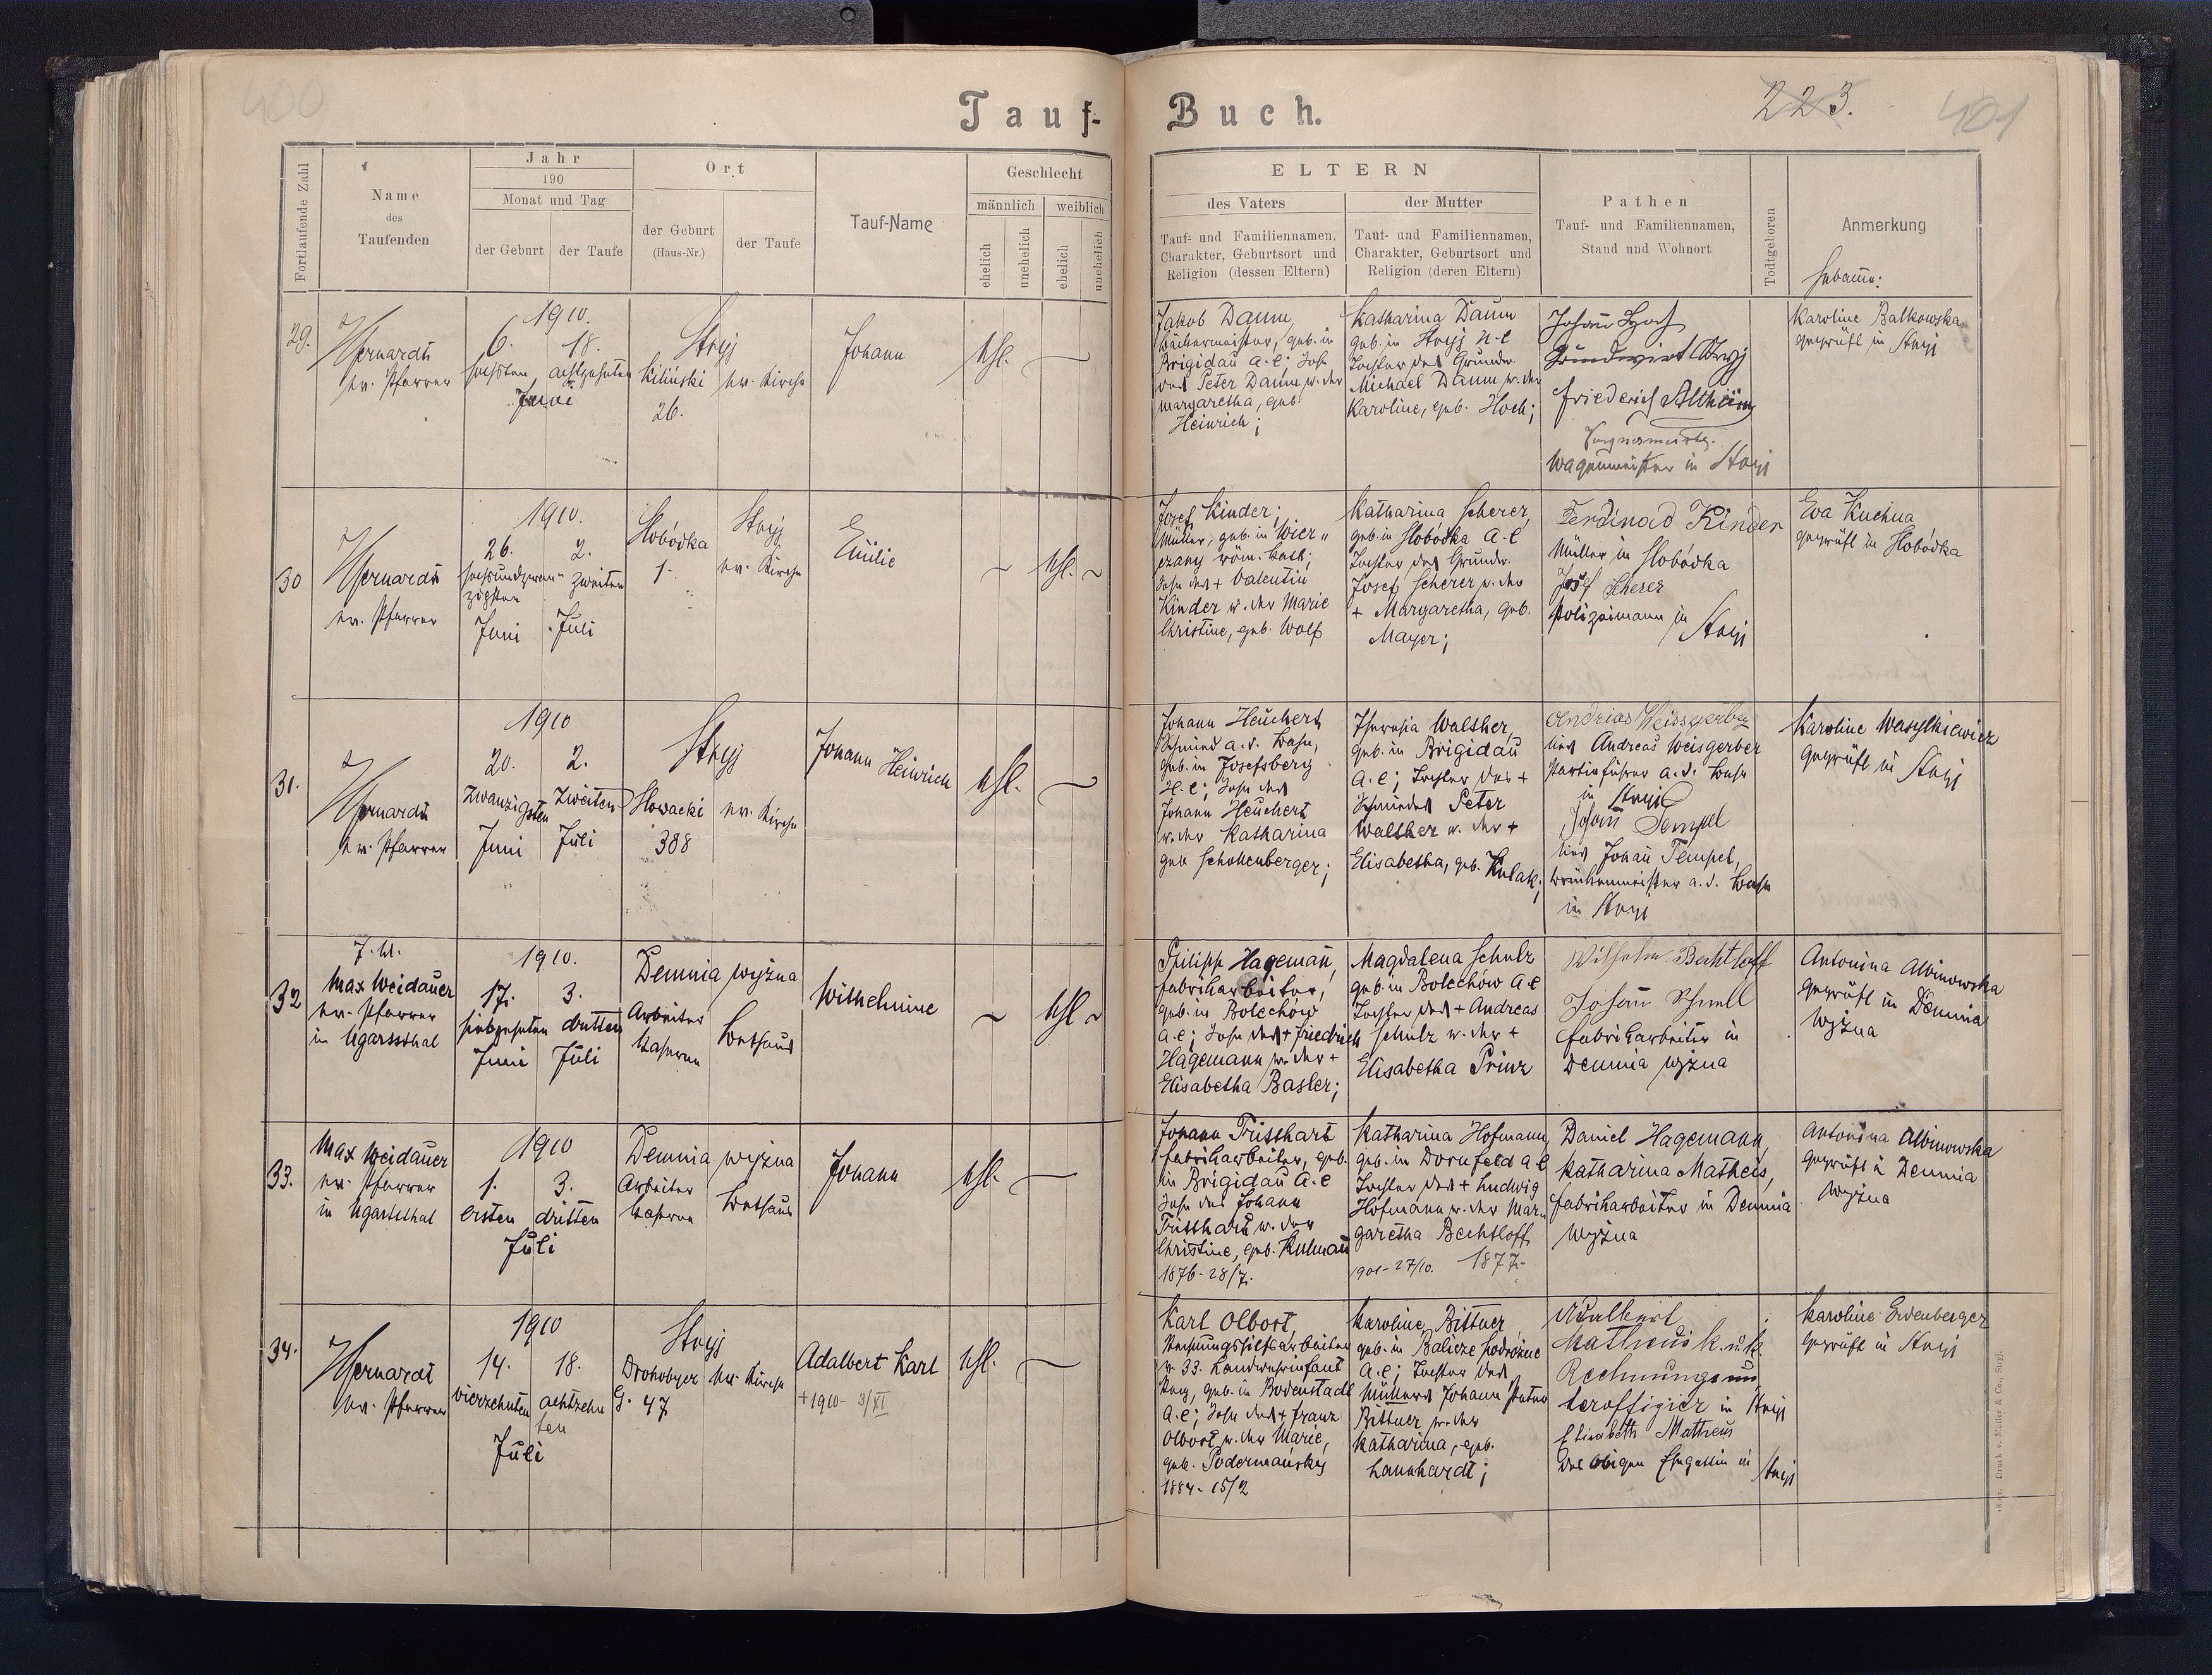 400
Tauf-Buch.
223.
401
Fortlaufende Zahl
Name
des
Taufenden
Jahr
190
Monat und Tag
der Geburt
der Taufe
Ort
der Geburt
(Haus-Nr.)
der Taufe
Tauf-Name
Geschlecht
männlich
weiblich
ehelich
unehelich
ehelich
unehelich
ELTERN
des Vaters
Tauf- und Familiennamen,
Charakter, Geburtsort und
Religion (dessen Eltern)
der Mutter
Tauf- und Familiennamen,
Charakter, Geburtsort und
Religion (deren Eltern)
Pathen
Tauf- und Familiennamen,
Stand und Wohnort
Todtgeboren
Anmerkung
Hebame:
29.
ev. Pfarrer
1910.
6.
sechsten
18.
achtzehnten
Juni
Stryj
Kiliński
26.
ev. Kirche
Johann
Ehl.
Jakob Daum,
Bäckermeister, geb. in
Brigidau A.C; Sohn
des Peter Daum u. der
Margaretha, geb.
Heinrich;
Katharina Daum
geb. in Stryj H.C
Tochter des Grundw.
Michael Daum u. der
Karoline, geb. Hoch;
Johann Hoch
Grundwirt Stryj
Friederich Altheim
Wagenmeister in Stryj
Karoline Balkowska
geprüft in Stryj
30
ev. Pfarrer
1910.
26.
sechsundzwan-
zigsten
Juni
2.
zweiten
Juli
Slobódka
1.
Stryj
ev. Kirche
Emilie
Ehl.
Josef Kinder;
Müller, geb. in Wier-
czany röm. kath;
Sohn des + Valentin
Kinder u. der Marie
Christine, geb. Wolf
Katharina Scherer,
geb. in Slobódka A.C
Tochter des Grundw.
Josef Scherer u. der
+ Margaretha, geb.
Mayer;
Ferdinad Kinder
Müller in Slobódka
Josef Scherer
Polizeimann in Stryj
Ewa Kuchna
geprüft in Slobódka
31.
ev. Pfarrer
1910
20.
zwanzigsten
Juni
2.
zweiten
Juli
Stryj
Slowacki
388
ev. Kirche
Johann Heinrich
Ehl.
Johann Heuchert
Schmied a. d. Bahn,
geb. in Josefsberg
H.C; Sohn des
Johann Heuchert
u. der Katharina
geb Schollenberger;
Theresia Walther,
geb. in Brigidau
A.C; Tochter des +
Schmiedes Peter
Walther u. der +
Elisabetha, geb. Kulak;
Andreas Weissgerber
lies Andreas Weisgerber
Partieführer a. d. Bahn
in Stryj
Johann Tempel
lies Johann Tempel,
Brückenmeister a. d. Bahn
in Stryj
Karoline Wasylkiewicz
geprüft in Stryj
32
Max Weidauer
ev. Pfarrer
in Ugarssthal
1910.
17.
siebzehnten
Juni
3.
dritten
Juli
Demnia wyżna
Arbeiter
Kaserne
Bethaus
Wilhelmine
Ehl
Philipp Hagemann,
Fabriksarbeiter,
geb. in Bolechów
A.C; Sohn des + Friedrich
Hagemann u. der +
Elisabetha Basler;
Magdalena Schulz
geb. in Bolechów A C
Tochter des + Andreas
Schulz u. der +
Elisabetha Prinz
Wilhelm Bechtloff
Johann Schnell
Fabrikarbeiter in
Demnia wyżna
Antonina Albinowska
geprüft in Demnia
Wyżna
33.
Max Weidauer
ev. Pfarrer
in Ugartsthal
1910
1.
ersten
3.
dritten
Juli
Demnia wyżna
Arbeiter
Kaserne
Bethaus
Johann
Ehl.
Johann Trisshart
Fabrikarbeiter, geb.
in Brigidau A.C
Sohn des Johann
Trisshart u. der
Christine, geb. Kulmann
1876-28/7.
Katharina Hofmann,
geb. in Dornfeld A C
Tochter des + Ludwig
Hofmann u. der Mar-
garetha Bechtloff
1901-27/10. 1877.
Daniel Hagemann,
Katharina Matheis,
Fabrikarbeiter in Demnia
Wyżna
Antonina Albinowska
geprüft in Demnia
Wyżna
34.
ev. Pfarrer
1910
14.
vierzehnten
18.
achtzehn
ten
Juli
Stryj
Drohobycer
G. 47
ev. Kirche
Adalbert Karl
+ 1910- 3/XI
Ehl.
Karl Olbort,
Rechnungshilfsarbeiter
33. Landwehrinfant
Reg, geb. in Bodenstadt
A.C; Sohn des + Franz
Olbort u. der Marie,
geb. Podermansky
1884-15/2
Karoline Bittner,
geb. in Balicze podróżne
A.C; Tochter des
Müllers Johann Peter
Bittner u. der
Katharina, geb.
Lannhardt;
Adalbert
Matheus k. u. k.
Rechnungsun
teroffizier in Stryj
Elisabeth Matheus
des obigen Ehegattin in Stryj
Karoline Erdenberger
geprüft in Stryj
Druck v. Müller & Co., Stryj.